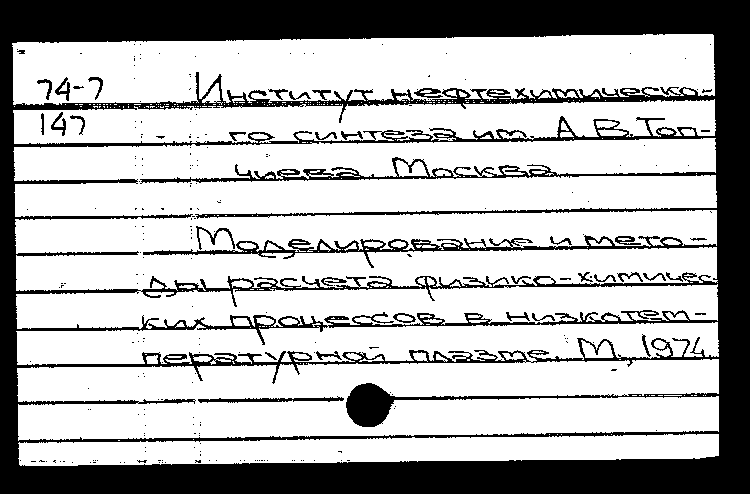 74-7 Институт нефтехимическо-
147 го синтеза им. А.В.Топ-
чиева. Москва
Моделирование и мето-
ды расчета физико-химичес-
ких процессов в низкотем-
пературной плазме. М., 1974